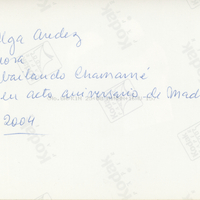 Olga Andez
nora
bailando Chamamé
en acto aniversario de Mad
2004